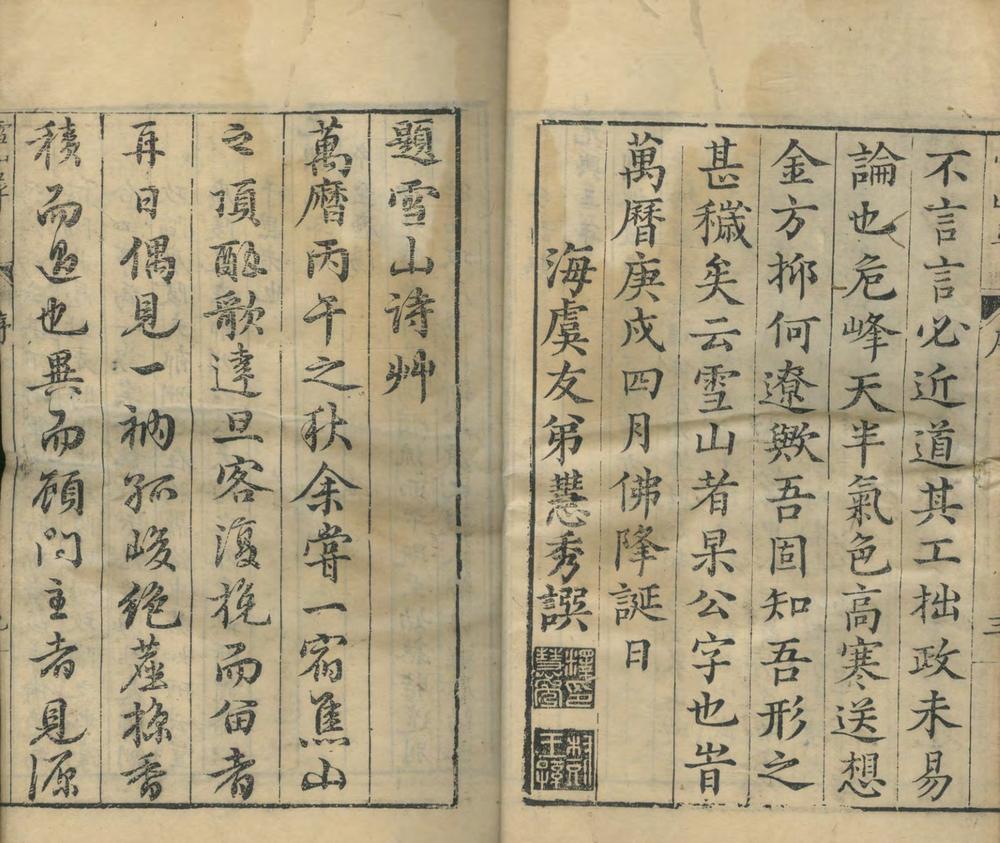 不言言必近道其工拙政未易
論也危峰天半氣色高寒送想
金方抑何遼歟吾固知吾形之
甚穢矣云雪山者杲公字也旹
萬曆庚戌四月佛降誕日
海虞友弟慧秀譔
題雪山詩艸
萬曆丙午之秋余嘗一宿焦山
之頂酣歌達旦客復挽而留者
再日偶見一衲孤峻絶塵掠香
積而過也異而顧問主者見源